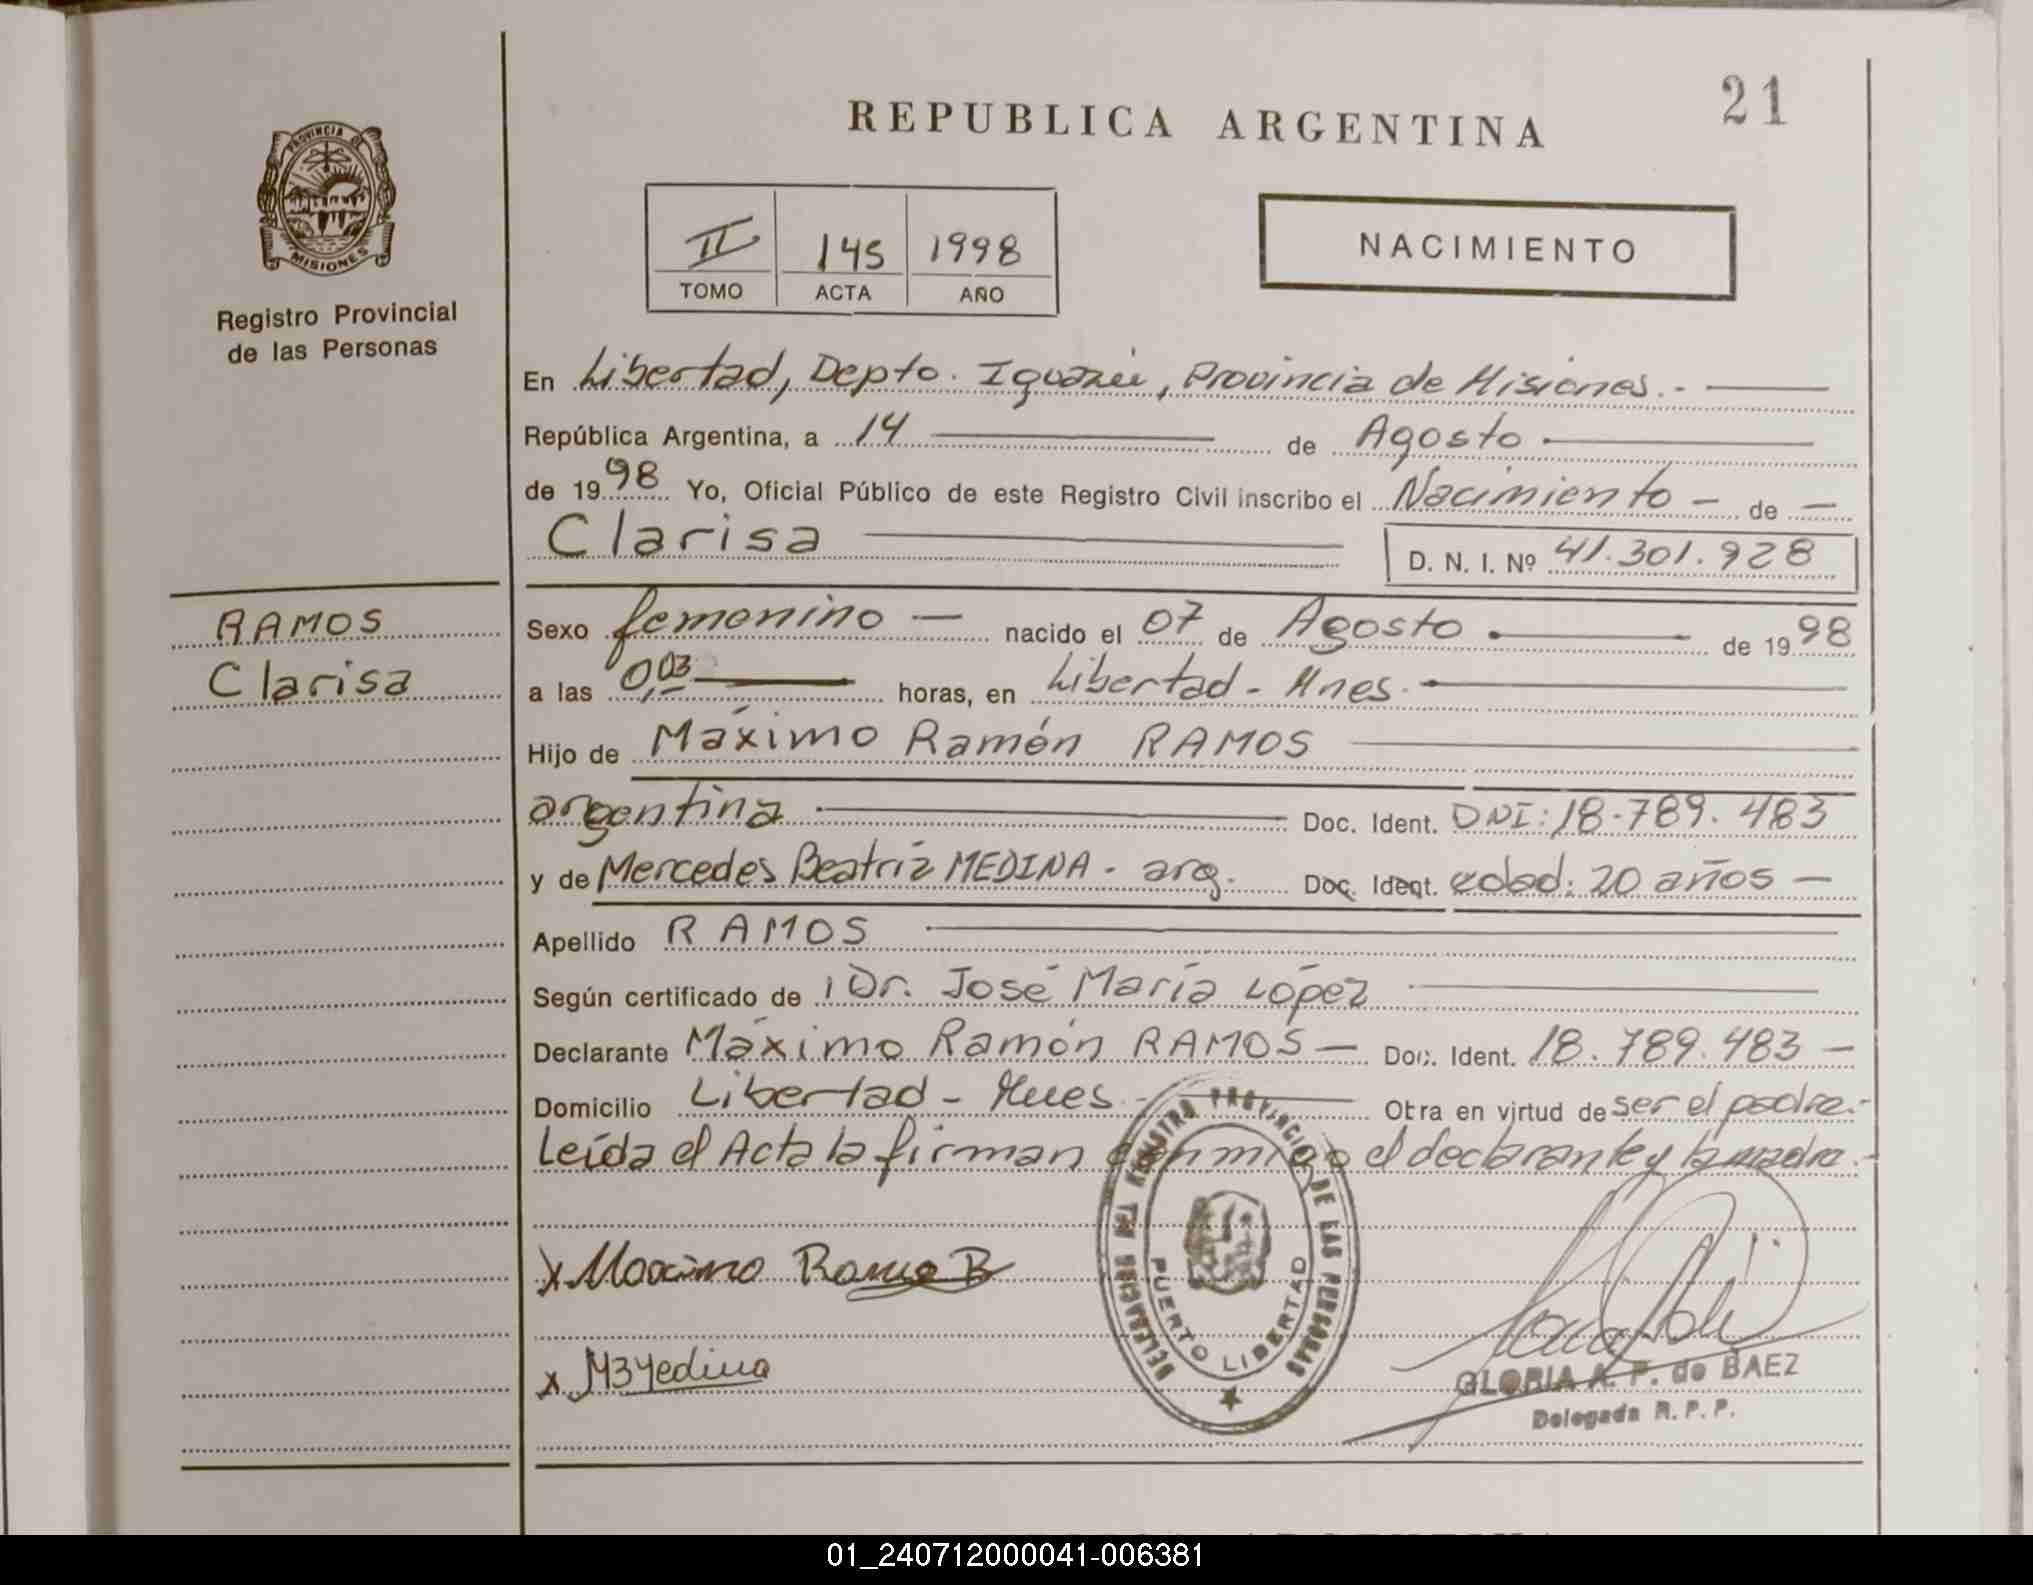 21
REPUBLICA ARGENTINA
PROVINCIA DE
MISIONES
Registro Provincial
de las Personas
II 145 1998
TOMO ACTA AÑO
NACIMIENTO
En Libertad, Depto. Iguazú, Provincia de Misiones.-
República Argentina, a 14 de Agosto
de 1998 Yo, Oficial Público de este Registro Civil inscribo el Nacimiento - de -
Clarisa D. N. I. Nº 41.301.928
RAMOS
Clarisa
Sexo femenino - nacido el 07 de Agosto de 1998
a las 0,03 horas, en Libertad - Mnes.
Hijo de Máximo Ramón RAMOS
argentina Doc. Ident. DNI: 18.789.483
y de Mercedes Beatriz MEDINA - arg. Doc. Ident. edad: 20 años -
Apellido RAMOS
Según certificado de Dr. José María López
Declarante Máximo Ramón RAMOS - Doc. Ident. 18.789.483 -
Domicilio Libertad - Mnes - Obra en virtud de ser el padre.-
Leída el Acta la firman conmigo el declarante y la madre.-
x Maximo Ramos B
x MBMedina
DELEGACION DEL REGISTRO PROVINCIAL DE LAS PERSONAS
PUERTO LIBERTAD
GLORIA A. F. de BAEZ
Delegada R. P. P.
01_240712000041-006381